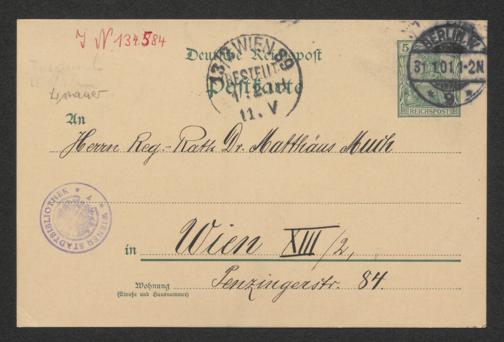 J N 134584
Deutsche Reichspost
Postkarte
13/7 WIEN 89
BESTELLT
11. V
BERLIN, W.
31.1.01.1-2N
* 9 *
5
REICHSPOST
An
Herrn Reg.-Rath Dr. Matthäus Much
WIENER STADTBIBLIOTHEK
in Wien XIII/2,
Wohnung
(Straße und Hausnummer)
Penzingerstr. 84.